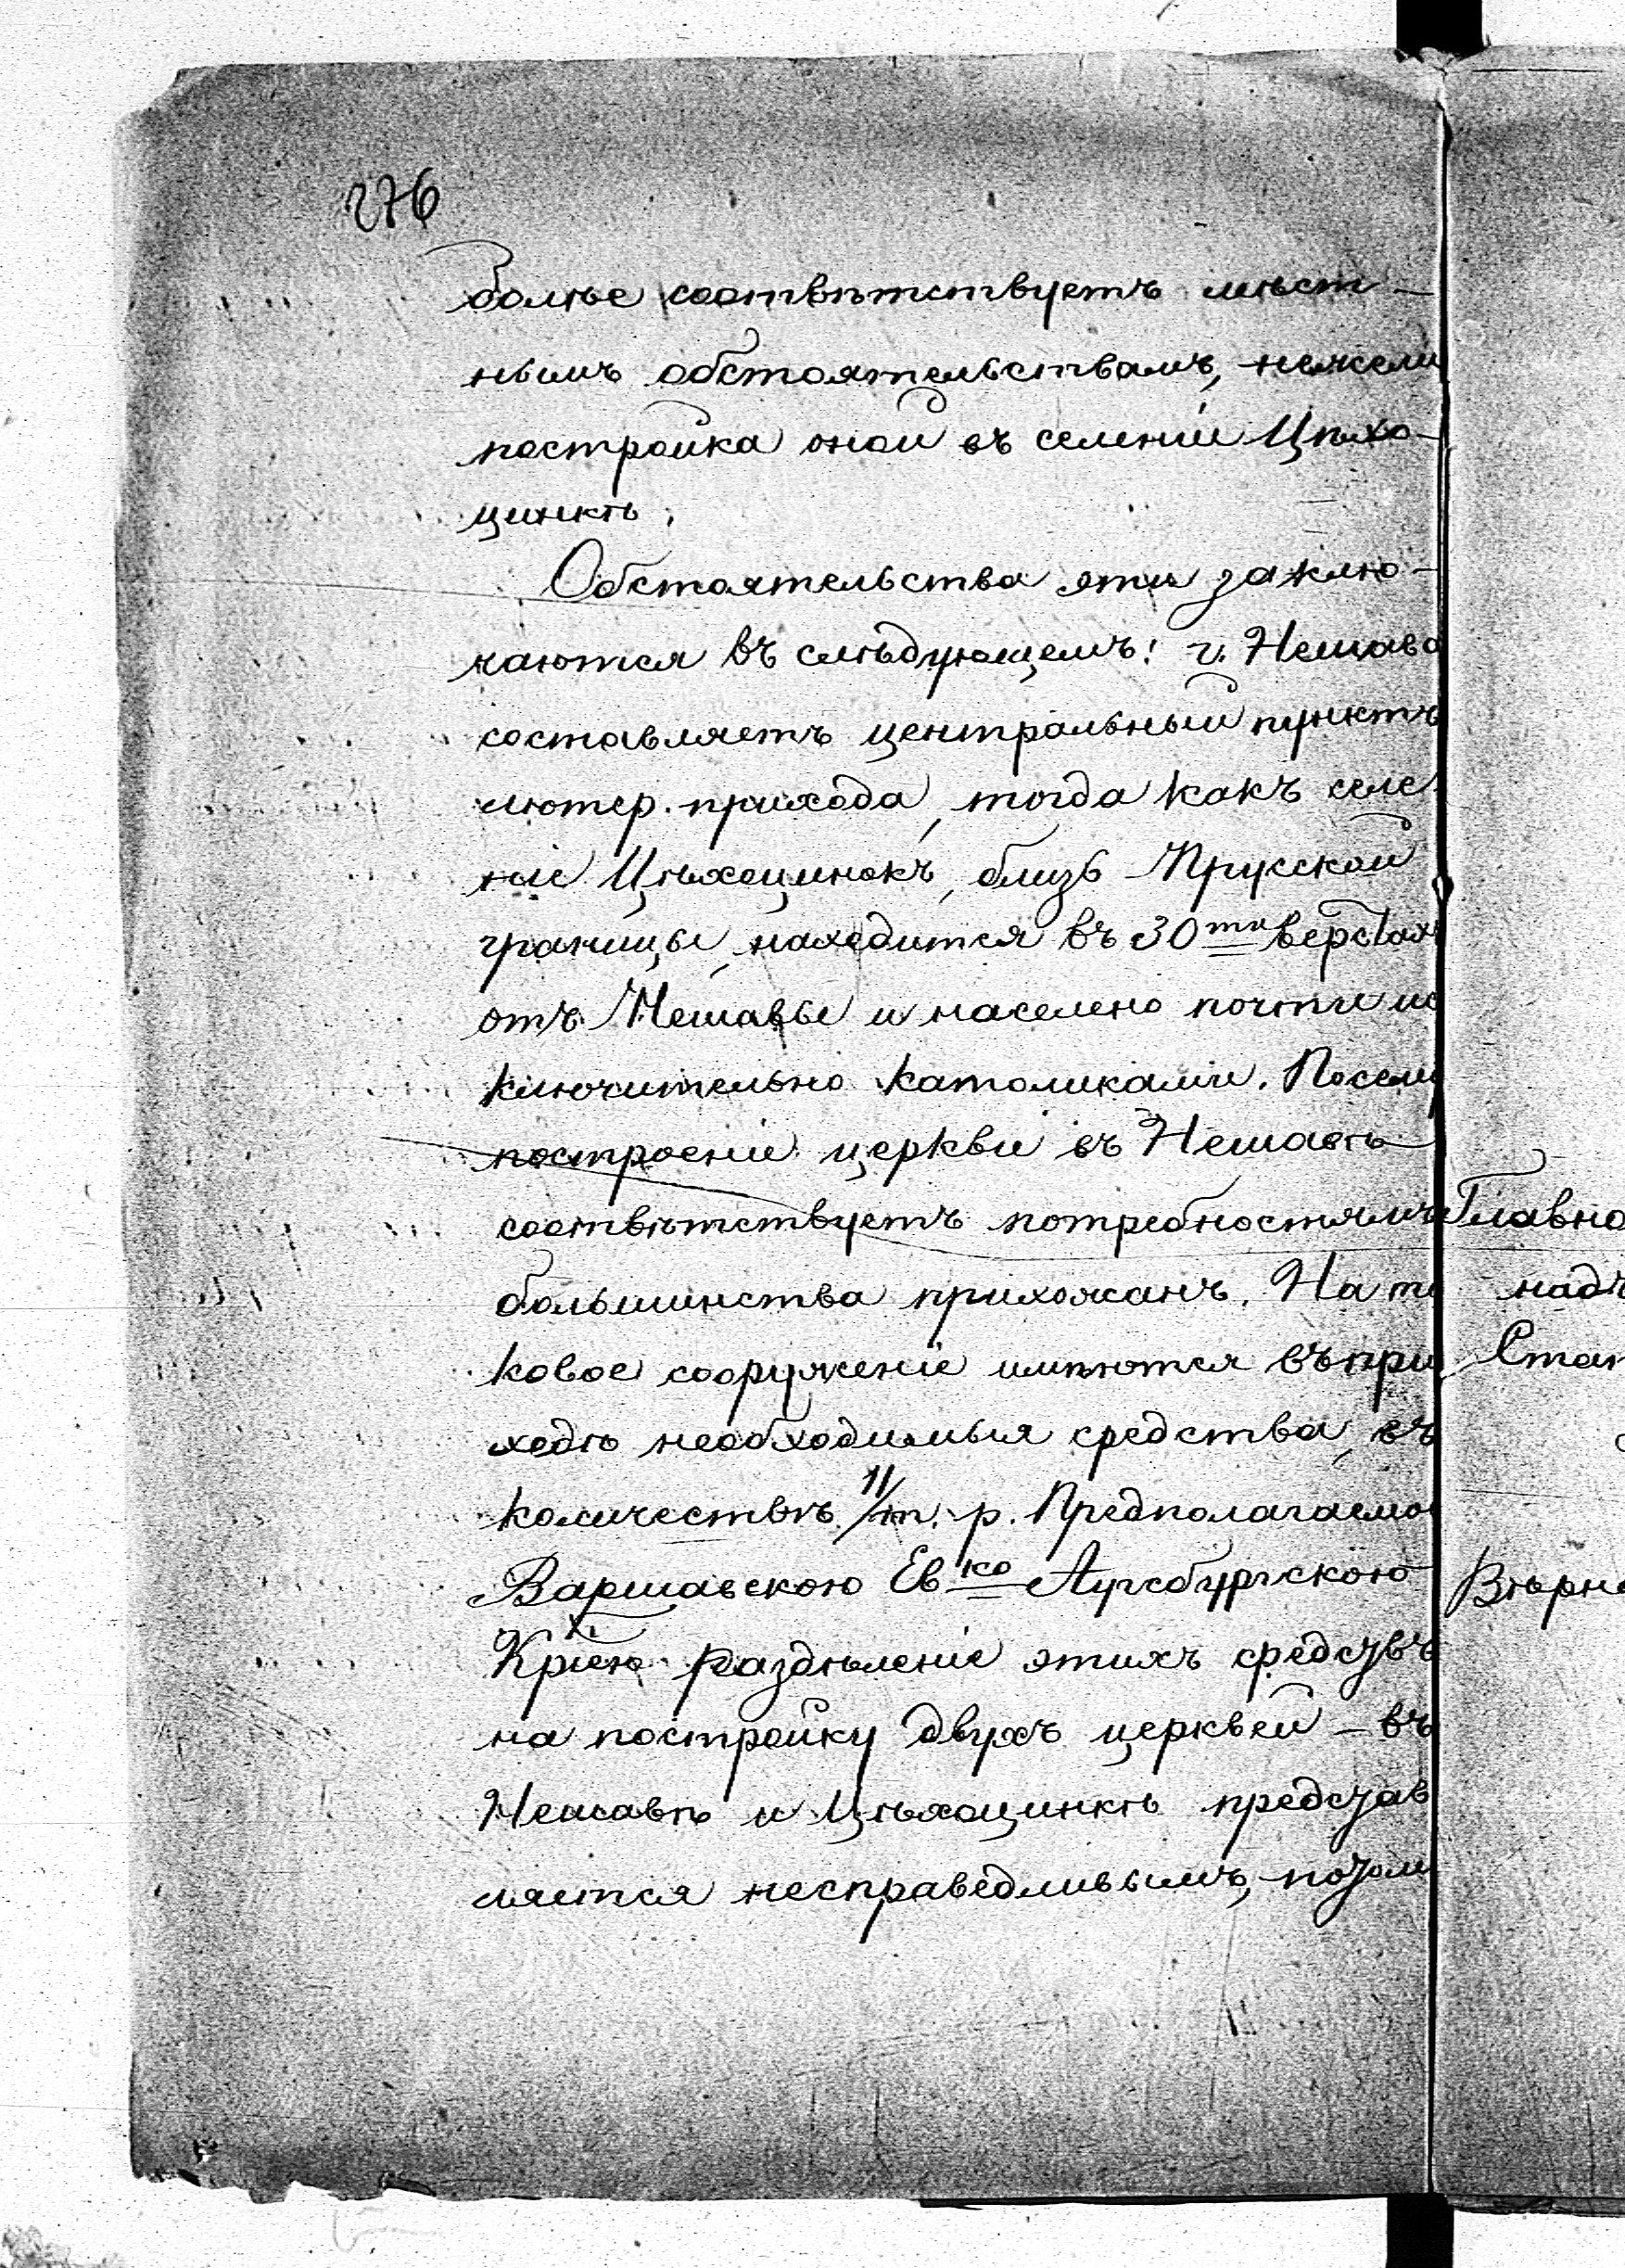 276
болѣе соотвѣтствуетъ мѣст-
нымъ обстоятельствамъ, нежели
постройка оной въ селеніи Цѣхо-
цинкѣ.
Обстоятельства эти заклю-
чаются въ слѣдующемъ: г. Нешава
составляетъ центральный пунктъ
лютер. прихода, тогда какъ селе
ніе Цѣхоцинокъ, близь Прусской
границы, находится въ 30ти верстах
отъ Нешавы и населено почти ис
ключительно католиками. Посему
построеніе церкви въ Нешавѣ
соотвѣтствуетъ потребностямъ
большинства прихожанъ. На та
ковое сооруженіе имѣются въ при
ходѣ необходимыя средства, въ
количествѣ 11/т. р. Предполагаемое
Варшавскою Евко Аугсбургскою
Кріею раздѣленіе этихъ средствъ
на постройку двухъ церквей – въ
Нешавѣ и Цѣхоцинкѣ представ
ляется несправедливымъ, потому
Главно
надъ
Стат
Вѣрно